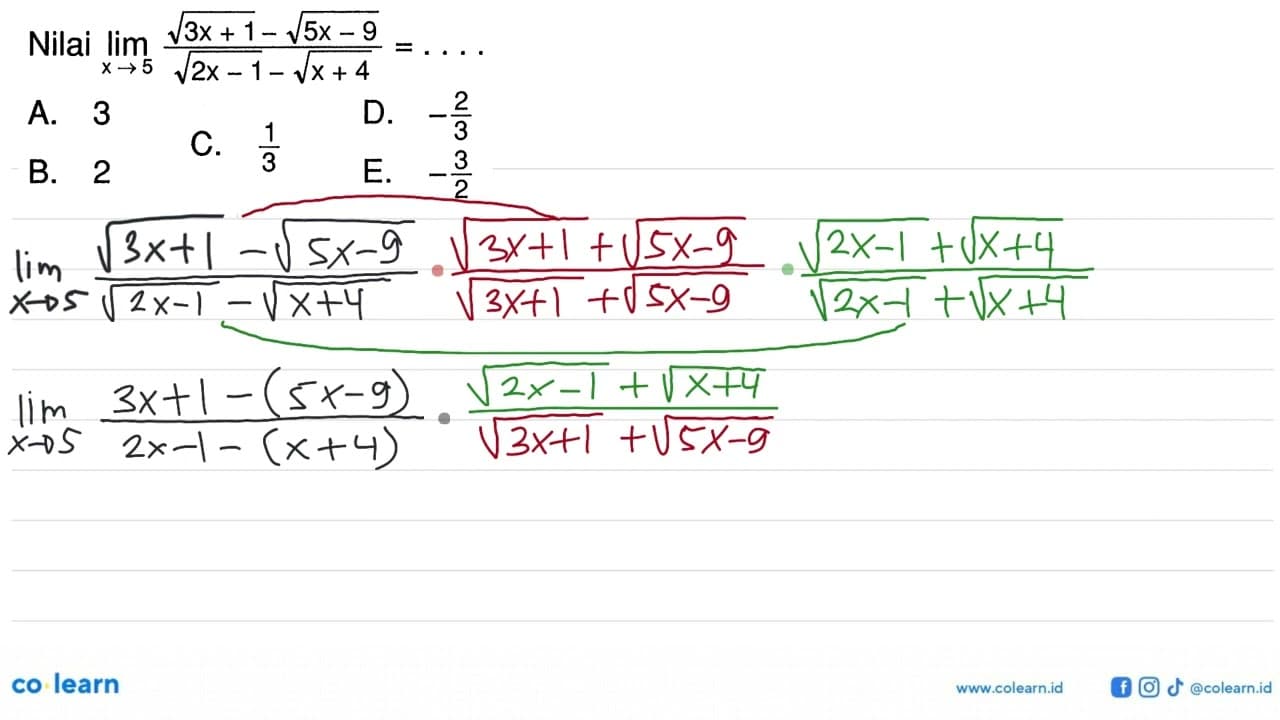 Nilai lim x→5 (√(3x + 1) – √(5x – 9))/(√(2x – 1) – √(x + 4)) = . . . .
A. 3
B. 2
C. 1/3
D. –2/3
E. –3/2
lim x→5 (√(3x+1) – √(5x–9))/(√(2x–1) – √(x+4)) · (√(3x+1) + √(5x–9))/(√(3x+1) + √(5x–9)) · (√(2x–1) + √(x+4))/(√(2x–1) + √(x+4))
lim x→5 (3x+1 – (5x–9))/(2x–1 – (x+4)) · (√(2x–1) + √(x+4))/(√(3x+1) + √(5x–9))
co learn
www.colearn.id
@colearn.id